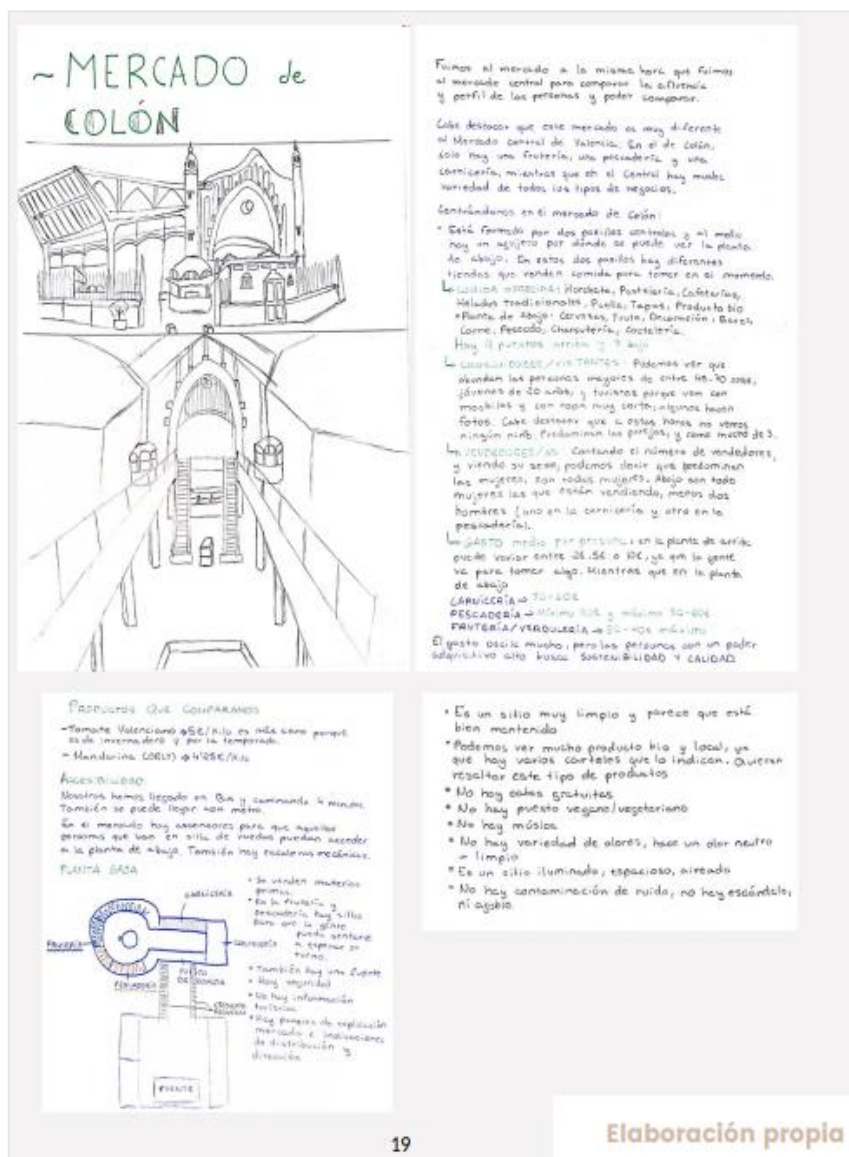 ~ MERCADO de
COLÓN
Fuimos al mercado a la misma hora que fuimos
al mercado central para comparar la afluencia
y perfil de las personas y poder comparar.
Cabe destacar que este mercado es muy diferente
al Mercado central de Valencia. En el de Colón,
solo hay una frutería, una pescadería y una
carnicería, mientras que en el Central hay mucha
variedad de todos los tipos de negocios.
Centrándonos en el mercado de Colón:
* Está formado por dos pasillos centrales y al medio
hay un agujero por dónde se puede ver la planta
de abajo. En estos dos pasillos hay diferentes
tiendas que venden comida para tomer en el momento.
Horchata, Pastelería, Cafeterías,
Helados tradicionales, Paella, Tapas, Producto bio
*Planta de Abajo: Cervezas, Fruta, Decoración,
Carne, Pescado, Charcutería, Coctelería.
Hay puestos arriba y 7 bajo
VISITANTES: Podemos ver que
abundan las personas mayores de entre 45-70 años,
jóvenes de 20 años, y turistas porque van con
mochilas y con ropa muy corta, algunos hacen
fotos. Cabe destacar que a estas horas no vemos
ningún niño. Predominan las parejas, y como mucho de 3.
Contando el número de vendedores,
y viendo su sexo, podemos decir que predominan
las mujeres, son todas mujeres. Abajo son todo
mujeres las que están vendiendo, menos dos
hombres (uno en la carnicería y otro en la
pescadería).
GASTO medio por persona: en la planta de arriba
puede variar entre 2€, 5€ o 10€, ya que la gente
va para tomar algo. Mientras que en la planta
de abajo
CARNICERÍA →
PESCADERÍA → Mínimo y máximo
FRUTERÍA/VERDULERÍA → máximo
El gasto oscila mucho, pero las personas con un poder
adquisitivo alto busca SOSTENIBILIDAD Y CALIDAD
PRODUCTOS QUE COMPARAMOS
- Tomate Valenciano →5€/Kilo es más caro porque
es de invernadero y por la temporada.
- Mandarina (ORLY) →4'25€/Kilo
ACCESIBILIDAD
Nosotras hemos llegado en Bus y caminando 4 minutos.
También se puede llegar con metro.
En el mercado hay ascensores para que aquellas
personas que van en silla de ruedas puedan acceder
a la planta de abajo. También hay escaleras mecánicas.
PLANTA BAJA
* Se venden materias
primas.
* En la frutería y
pescadería hay sillas
para que la gente
pueda sentarse
a esperar su
turno.
* También hay una fuente
* Hay seguridad
* No hay información
turística
* Hay paneles de explicación
mercado e indicaciones
de distribución y
dirección
PESCADERÍA
FUENTE
* Es un sitio muy limpio y parece que está
bien mantenido
* Podemos ver mucho producto bio y local, ya
que hay varios carteles que lo indican. Quieren
resaltar este tipo de productos
* No hay catas gratuitas
* No hay puesto vegano/vegetariano
* No hay música
* No hay variedad de olores, hace un olor neutro
o limpio
* Es un sitio iluminado, espacioso, aireado
* No hay contaminación de ruido, no hay escándalo,
ni agobio.
19
Elaboración propia